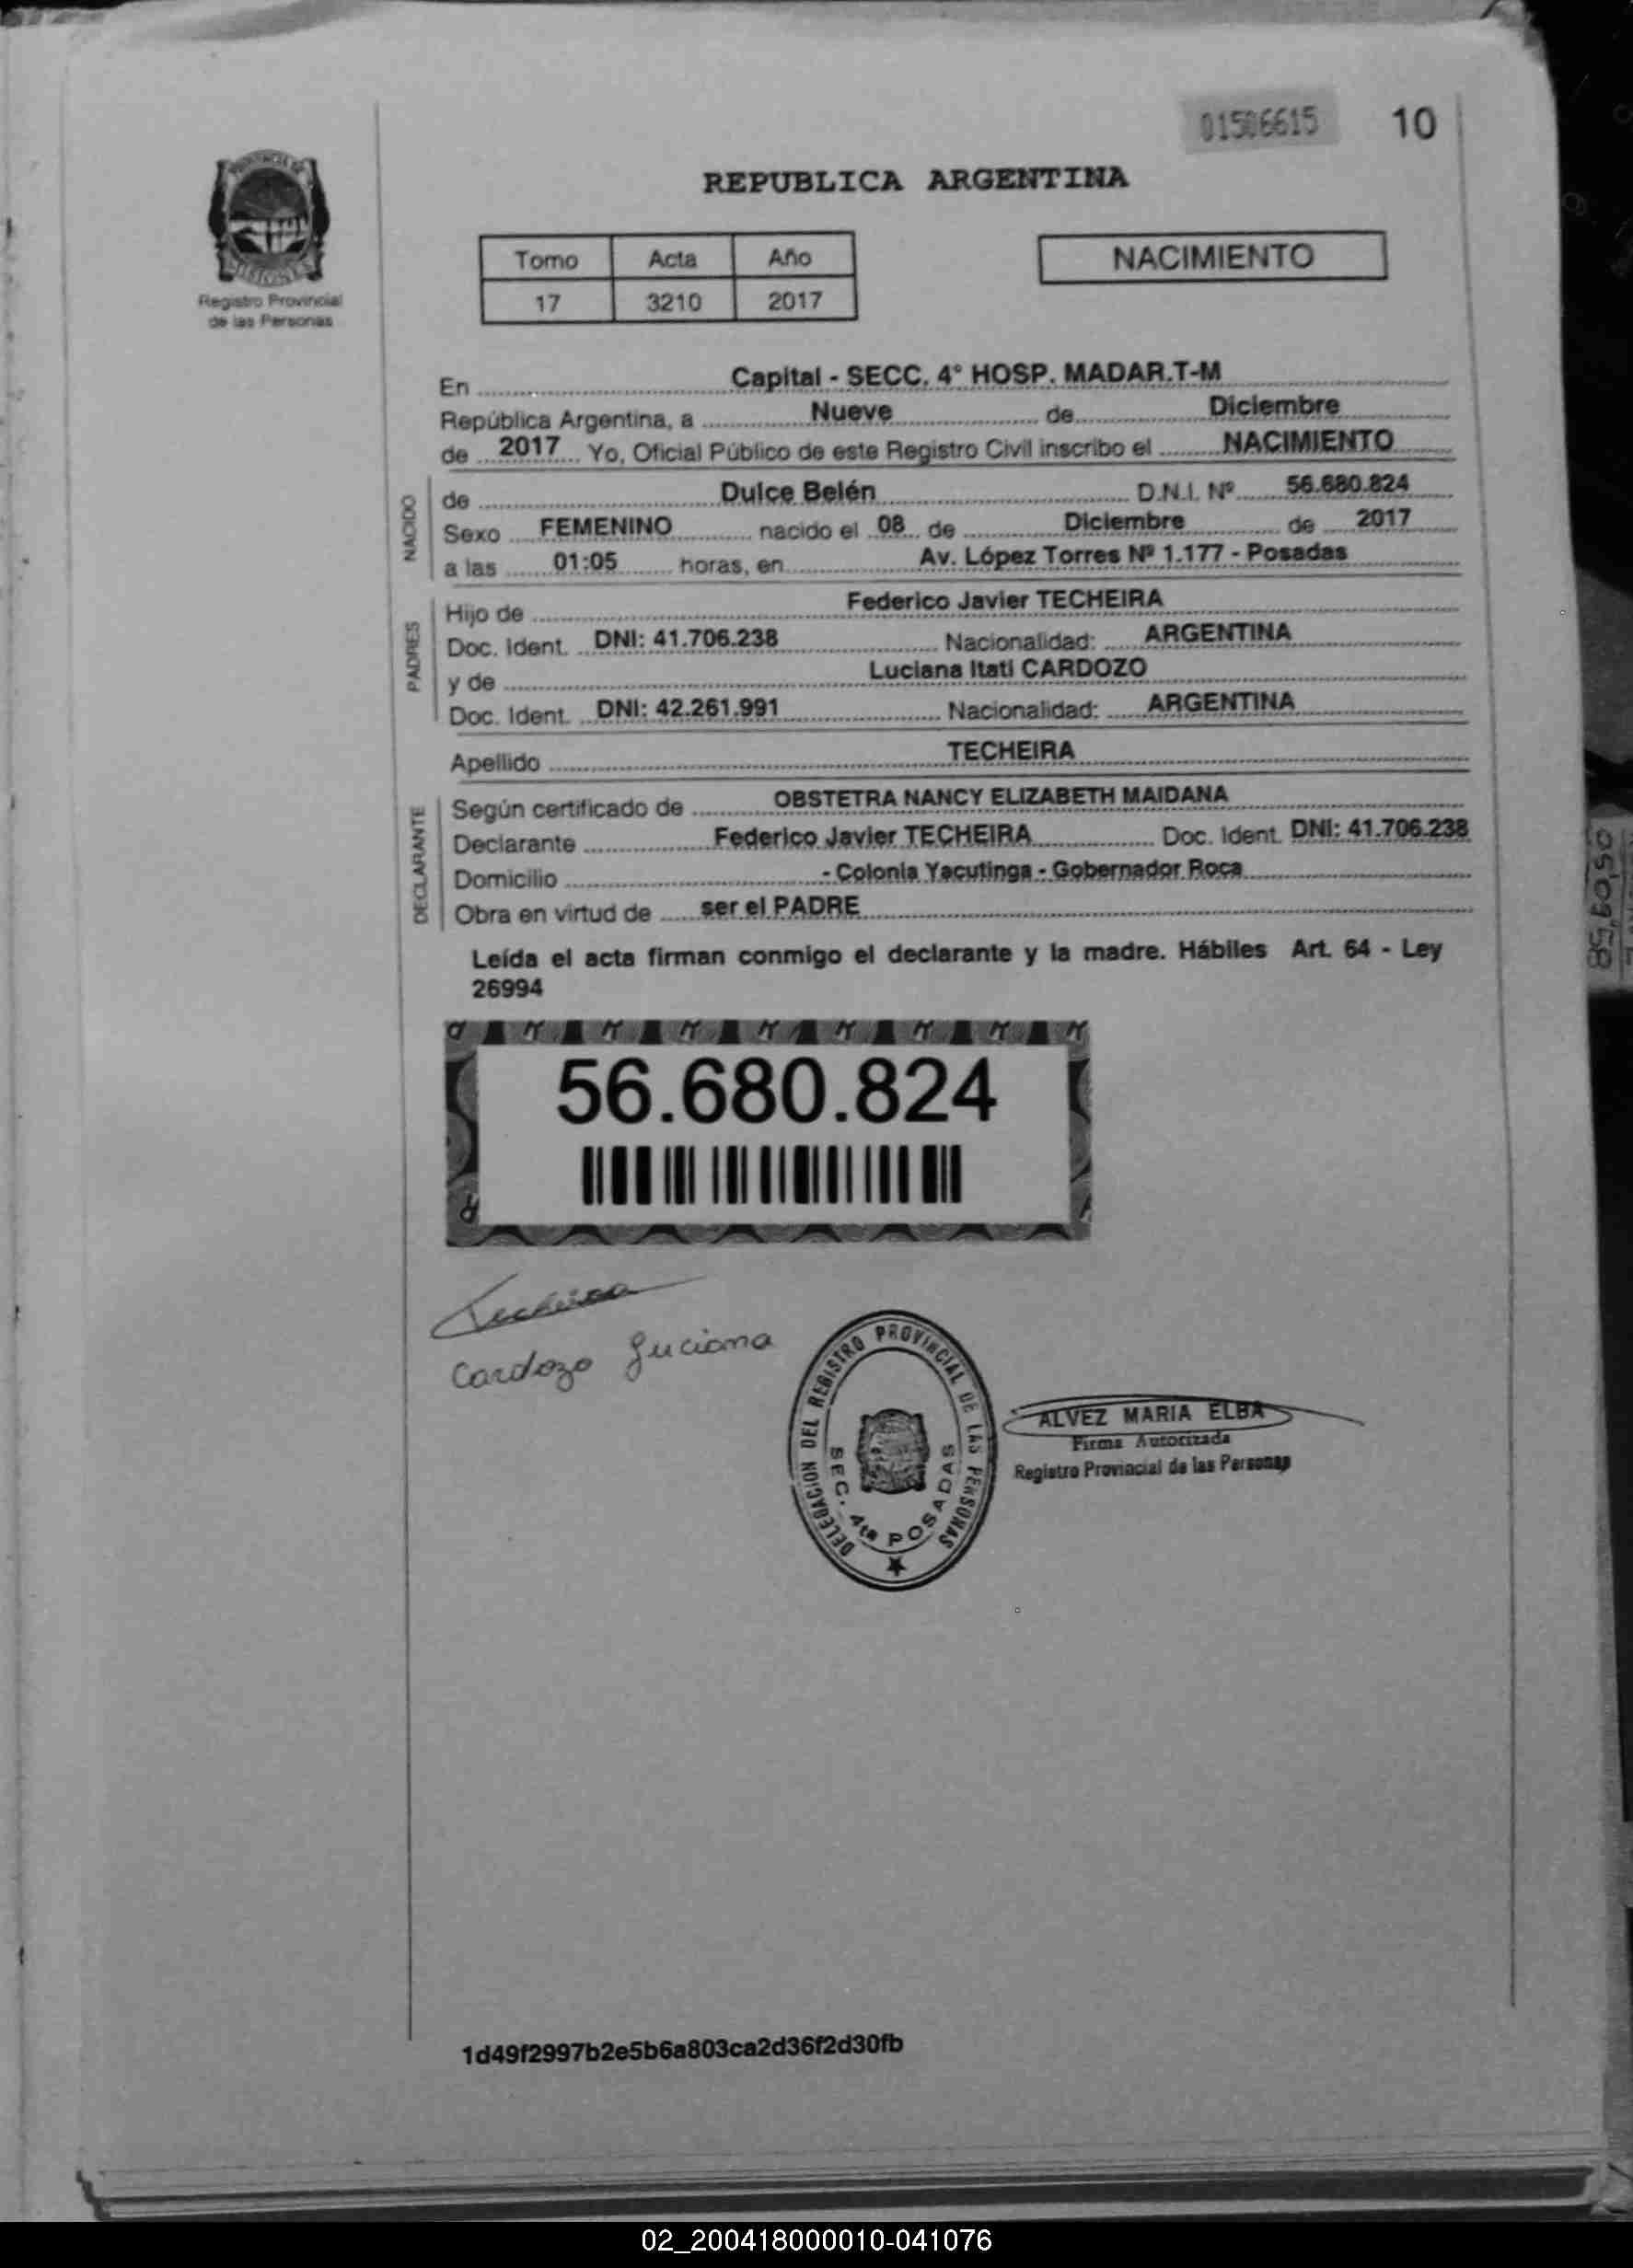 01506615 10
REPUBLICA ARGENTINA
Registro Provincial
de las Personas
Tomo Acta Año
17 3210 2017
NACIMIENTO
En Capital - SECC. 4° HOSP. MADAR.T-M
República Argentina, a Nueve de Diciembre
de 2017 Yo, Oficial Público de este Registro Civil inscribo el NACIMIENTO
NACIDO
de Dulce Belén D.N.I. Nº 56.680.824
Sexo FEMENINO nacido el 08 de Diciembre de 2017
a las 01:05 horas, en Av. López Torres Nº 1.177 - Posadas
PADRES
Hijo de Federico Javier TECHEIRA
Doc. Ident. DNI: 41.706.238 Nacionalidad: ARGENTINA
y de Luciana Itati CARDOZO
Doc. Ident. DNI: 42.261.991 Nacionalidad: ARGENTINA
Apellido TECHEIRA
DECLARANTE
Según certificado de OBSTETRA NANCY ELIZABETH MAIDANA
Declarante Federico Javier TECHEIRA Doc. Ident. DNI: 41.706.238
Domicilio - Colonia Yacutinga - Gobernador Roca
Obra en virtud de ser el PADRE
Leída el acta firman conmigo el declarante y la madre. Hábiles Art. 64 - Ley
26994
56.680.824
Techeira
Cardozo Luciana
DELEGACION DEL REGISTRO PROVINCIAL DE LAS PERSONAS
SEC. 4ta POSADAS
ALVEZ MARIA ELBA
Firma Autorizada
Registro Provincial de las Personas
1d49f2997b2e5b6a803ca2d36f2d30fb
02_200418000010-041076